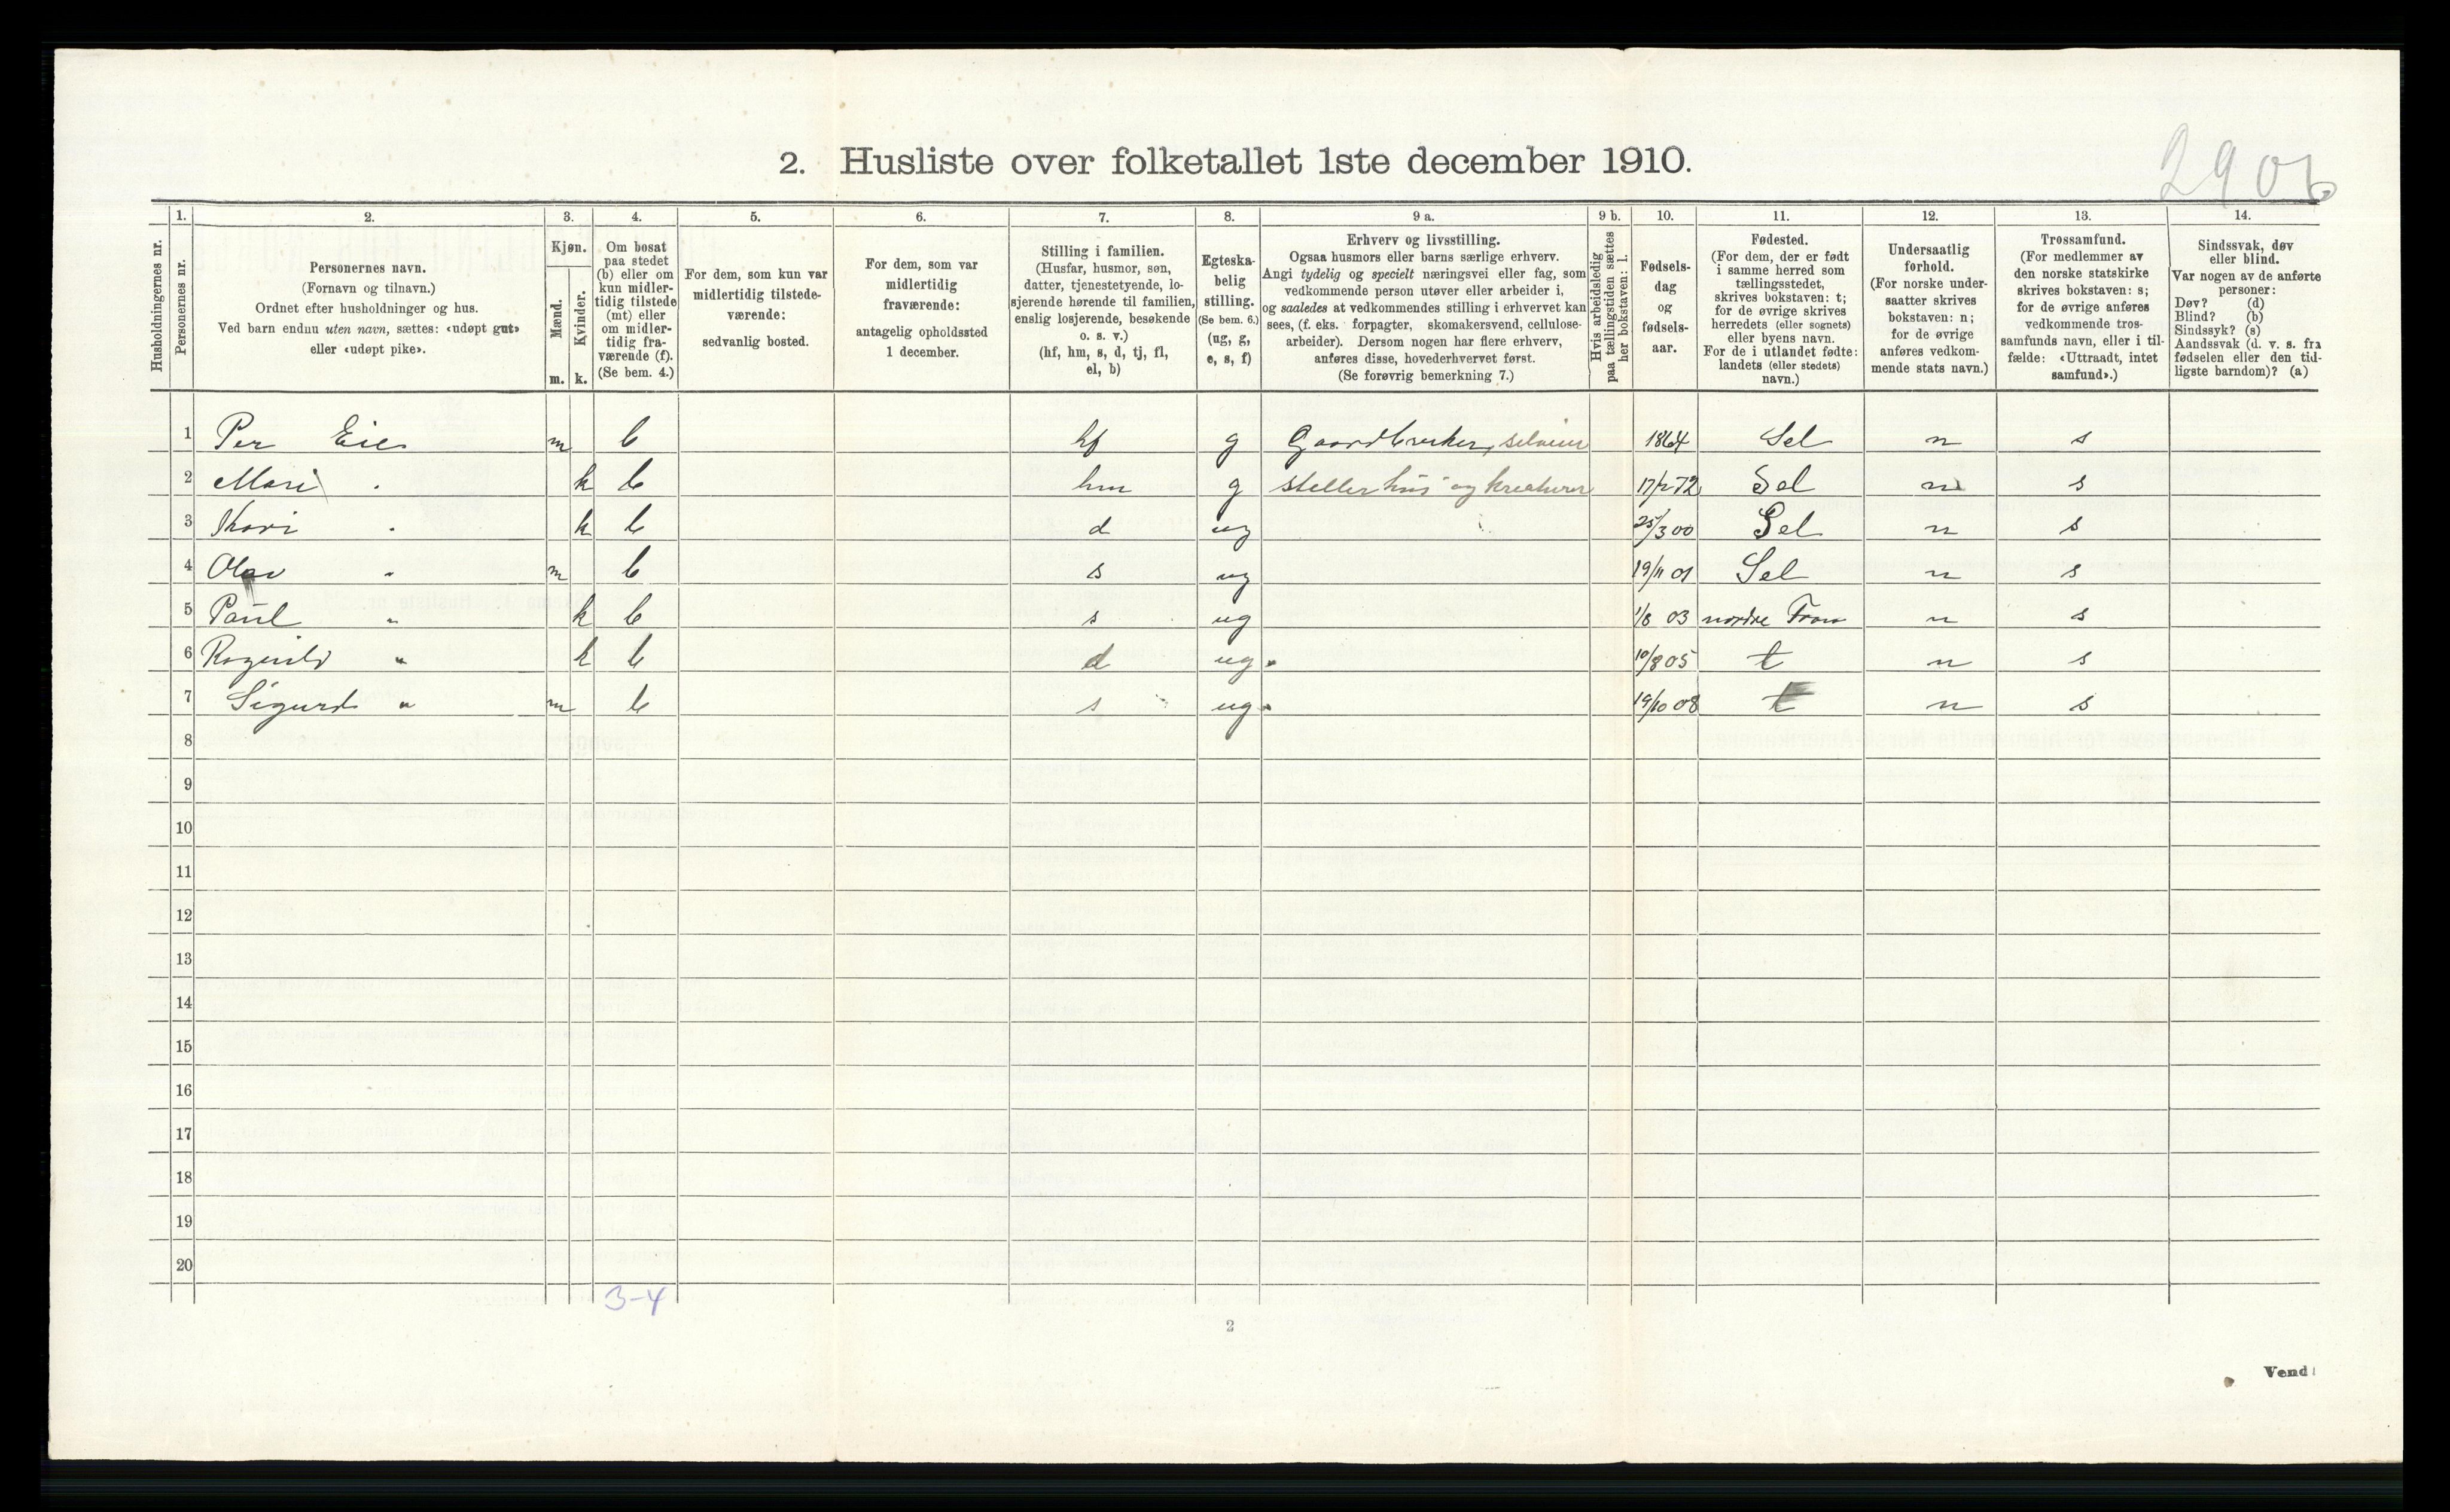 2. Husliste over folketallet 1ste december 1910.
Husholdningernes nr.
1.
Personernes nr.
2.
Personernes navn.
(Fornavn og tilnavn.)
Ordnet efter husholdninger og hus.
Ved barn endnu uten navn, sættes: «udøpt gut»
eller «udøpt pike».
3.
Kjøn.
Mænd.
Kvinder.
m. k.
4.
Om bosat
paa stedet
(b) eller om
kun midler-
tidig tilstede
(mt) eller
om midler-
tidig fra-
værende (f).
(Se bem. 4.)
5.
For dem, som kun var
midlertidig tilstede-
værende:
sedvanlig bosted.
6.
For dem, som var
midlertidig
fraværende:
antagelig opholdssted
1 december.
7.
Stilling i familien.
(Husfar, husmor, søn,
datter, tjenestetyende, lo-
sjerende hørende til familien,
enslig losjerende, besøkende
o. s. v.)
(hf, hm, s, d, tj, fl,
el, b)
8.
Egteska-
belig
stilling.
(Se bem. 6.)
(ug, g,
e, s, f)
9 a.
Erhverv og livsstilling.
Ogsaa husmors eller barns særlige erhverv.
Angi tydelig og specielt næringsvei eller fag, som
vedkommende person utøver eller arbeider i,
og saaledes at vedkommendes stilling i erhvervet kan
sees, (f. eks. forpagter, skomakersvend, cellulose-
arbeider). Dersom nogen har flere erhverv,
anføres disse, hovederhvervet først.
(Se forøvrig bemerkning 7.)
9 b.
Hvis arbeidsledig
paa tællingstiden sættes
her bokstaven: l.
10.
Fødsels-
dag
og
fødsels-
aar.
11.
Fødested.
(For dem, der er født
i samme herred som
tællingsstedet,
skrives bokstaven: t;
for de øvrige skrives
herredets (eller sognets)
eller byens navn.
For de i utlandet fødte:
landets (eller stedets)
navn.)
12.
Undersaatlig
forhold.
(For norske under-
saatter skrives
bokstaven: n;
for de øvrige
anføres vedkom-
mende stats navn.)
13.
Trossamfund.
(For medlemmer av
den norske statskirke
skrives bokstaven: s;
for de øvrige anføres
vedkommende tros-
samfunds navn, eller i til-
fælde: «Uttraadt, intet
samfund».)
14.
Sindssvak, døv
eller blind.
Var nogen av de anførte
personer:
Døv? (d)
Blind? (b)
Sindssyk? (s)
Aandssvak (d. v. s. fra
fødselen eller den tid-
ligste barndom)? (a)
1 Per Eie m b hf g Gaardbruker, selveier 1864 Sel n s
2 Mari " k b hm g steller hus og kreaturer 17/2 72 Sel n s
3 Kari " k b d ug 25/3 00 Sel n s
4 Olav " m b s ug 19/11 01 Sel n s
5 Paul " k b s ug 1/8 03 nordre Fron n s
6 Ragnild " k b d ug. 10/8 05 t n s
7 Sigurd " m b s ug. 19/10 08 t n s
8
9
10
11
12
13
14
15
16
17
18
19
20
3-4
2
Vend